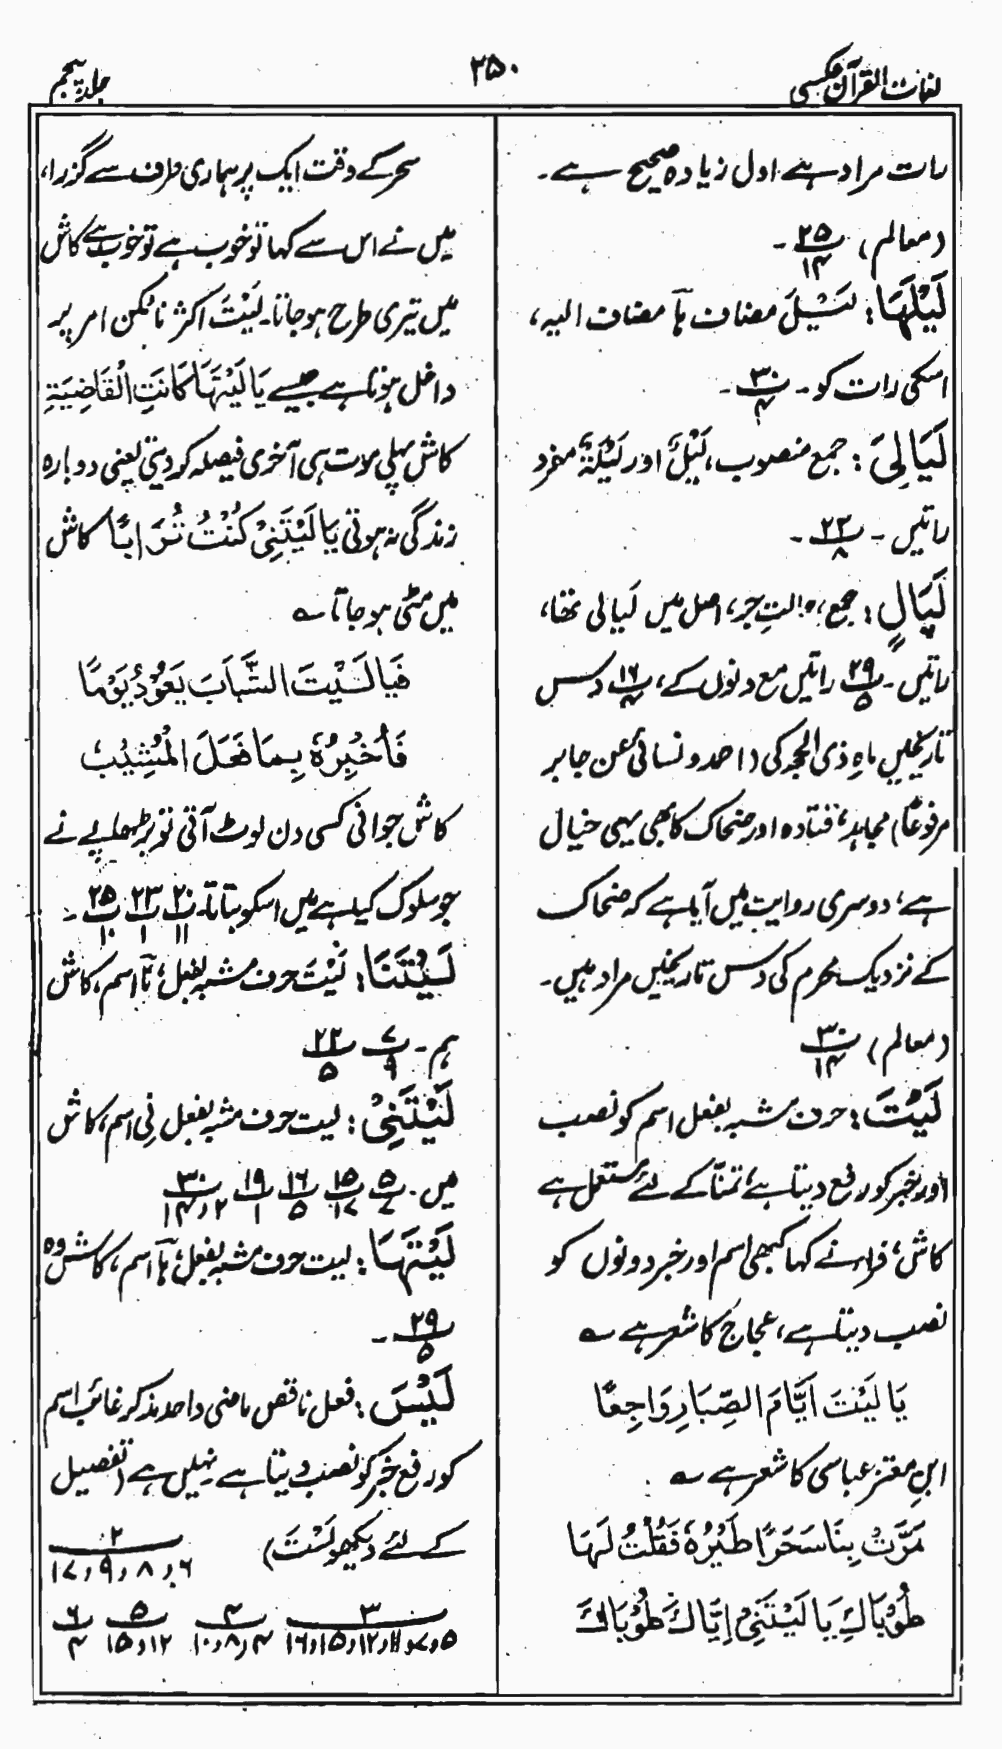 لغات القرآن عکسی
۳۵۰
جلد پنجم
رات مراد ہے اول زیادہ صحیح ہے۔
(معالم) ۲۵/۱۴ ۔
لَیْلَہَا: لَیْلَ مضاف ہَا مضاف الیہ،
اسکی رات کو۔ ۳۰/۴ ۔
لَیَالِیَ: جمع منصوب، لَیْلٌ اور لَیْلَۃٌ مفرد
راتیں ۔ ۲۲/۸ ۔
لَیَالٍ: جمع، حالتِ جر، اصل میں لَیَالی تھا،
راتیں۔ ۲۹/۵ راتیں مع دنوں کے، ۱۶/۴ دس
تاریخیں ماہِ ذی الحجہ کی (احمد و نسائی عن جابر
مرفوعًا) مجاہد، قتادہ اور ضحاک کا بھی یہی خیال
ہے، دوسری روایت میں آیا ہے کہ ضحاک
کے نزدیک محرم کی دس تاریخیں مراد ہیں۔
(معالم) ۳۰/۱۴
لَیْتَ: حرف مشبہ بفعل اسم کو نصب
اور خبر کو رفع دیتا ہے، تمنّا کے لئے مستعمل ہے
کاش، فراء نے کہا کبھی اسم اور خبر دونوں کو
نصب دیتا ہے، عجاج کا شعر ہے ؎
یَا لَیْتَ اَیَّامَ الصِّبَا رَوَاجِعًا
ابنِ معتز عباسی کا شعر ہے ؎
مَرَّتْ بِنَا سَحَرًا طَیْرٌ فَقُلْتُ لَہَا
طُوْبَاکِ یَا لَیْتَنِیْ اِیَّاکَ طُوْبَاکَ
سحر کے وقت ایک پر ہماری طرف سے گزرا،
میں نے اس سے کہا تو خوب ہے تو خوب ہے کاش
میں تیری طرح ہو جاتا۔ لَیْتَ اکثر ناممکن امر پر
داخل ہوتا ہے جیسے یَا لَیْتَہَا کَانَتِ الْقَاضِیَۃِ
کاش پہلی موت ہی آخری فیصلہ کر دیتی یعنی دوبارہ
زندگی نہ ہوتی یَا لَیْتَنِیْ کُنْتُ تُرَابًا کاش
میں مٹی ہو جاتا ؎
فَیَا لَیْتَ الشَّبَابَ یَعُوْدُ یَوْمًا
فَاُخْبِرُہٗ بِمَا فَعَلَ الْمَشِیْبُ
کاش جوانی کسی دن لوٹ آتی تو بڑھاپے نے
جو سلوک کیا ہے میں اسکو بتاتا۔ ۲۰/۱۱ ۲۳/۱ ۲۵/۱۰ ۔
لَیْتَنَا: لَیْتَ حرف مشبہ بفعل، نَا اسم، کاش
ہم۔ ۷/۹ ۲۲/۵
لَیْتَنِیْ: لیت حرف مشبہ بفعل نِی اسم، کاش
میں۔ ۵/۷ ۱۵/۱۷ ۱۶/۵ ۱۹/۱ ۳۰/۲،۱۴
لَیْتَہَا: لیت حرف مشبہ بفعل، ہَا اسم، کاش وہ
۲۹/۵ ۔
لَیْسَ: فعل ناقص ماضی واحد مذکر غائب اسم
کو رفع خبر کو نصب دیتا ہے نہیں ہے (تفصیل
کے لئے دیکھو لَسْتَ) ۲/۶،۸،۹،۱۷
۳/۵،۷،۱۱،۱۲،۱۵،۱۶ ۴/۴،۸،۱۰ ۵/۱۲،۱۵ ۶/۴